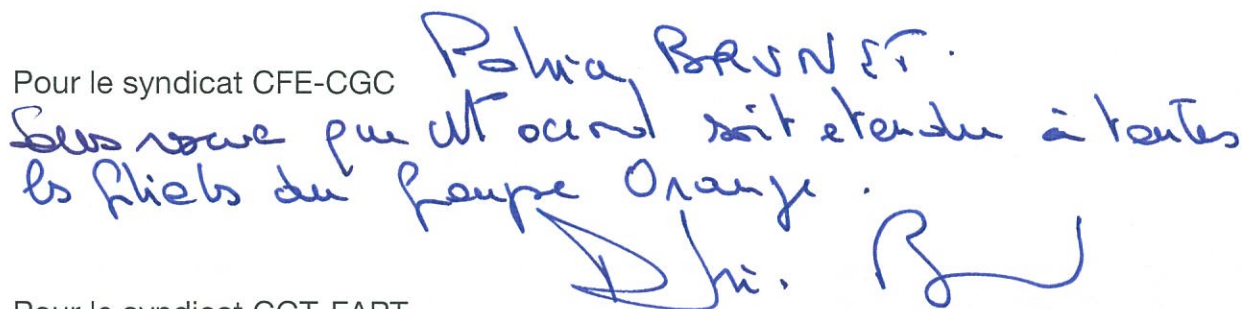 Pour le syndicat CFE-CGC BRUNET.
Sous réserve que cet accord soit etendu à toutes
les filiales du Groupe Orange.
Pour le syndicat CGT-FAPT